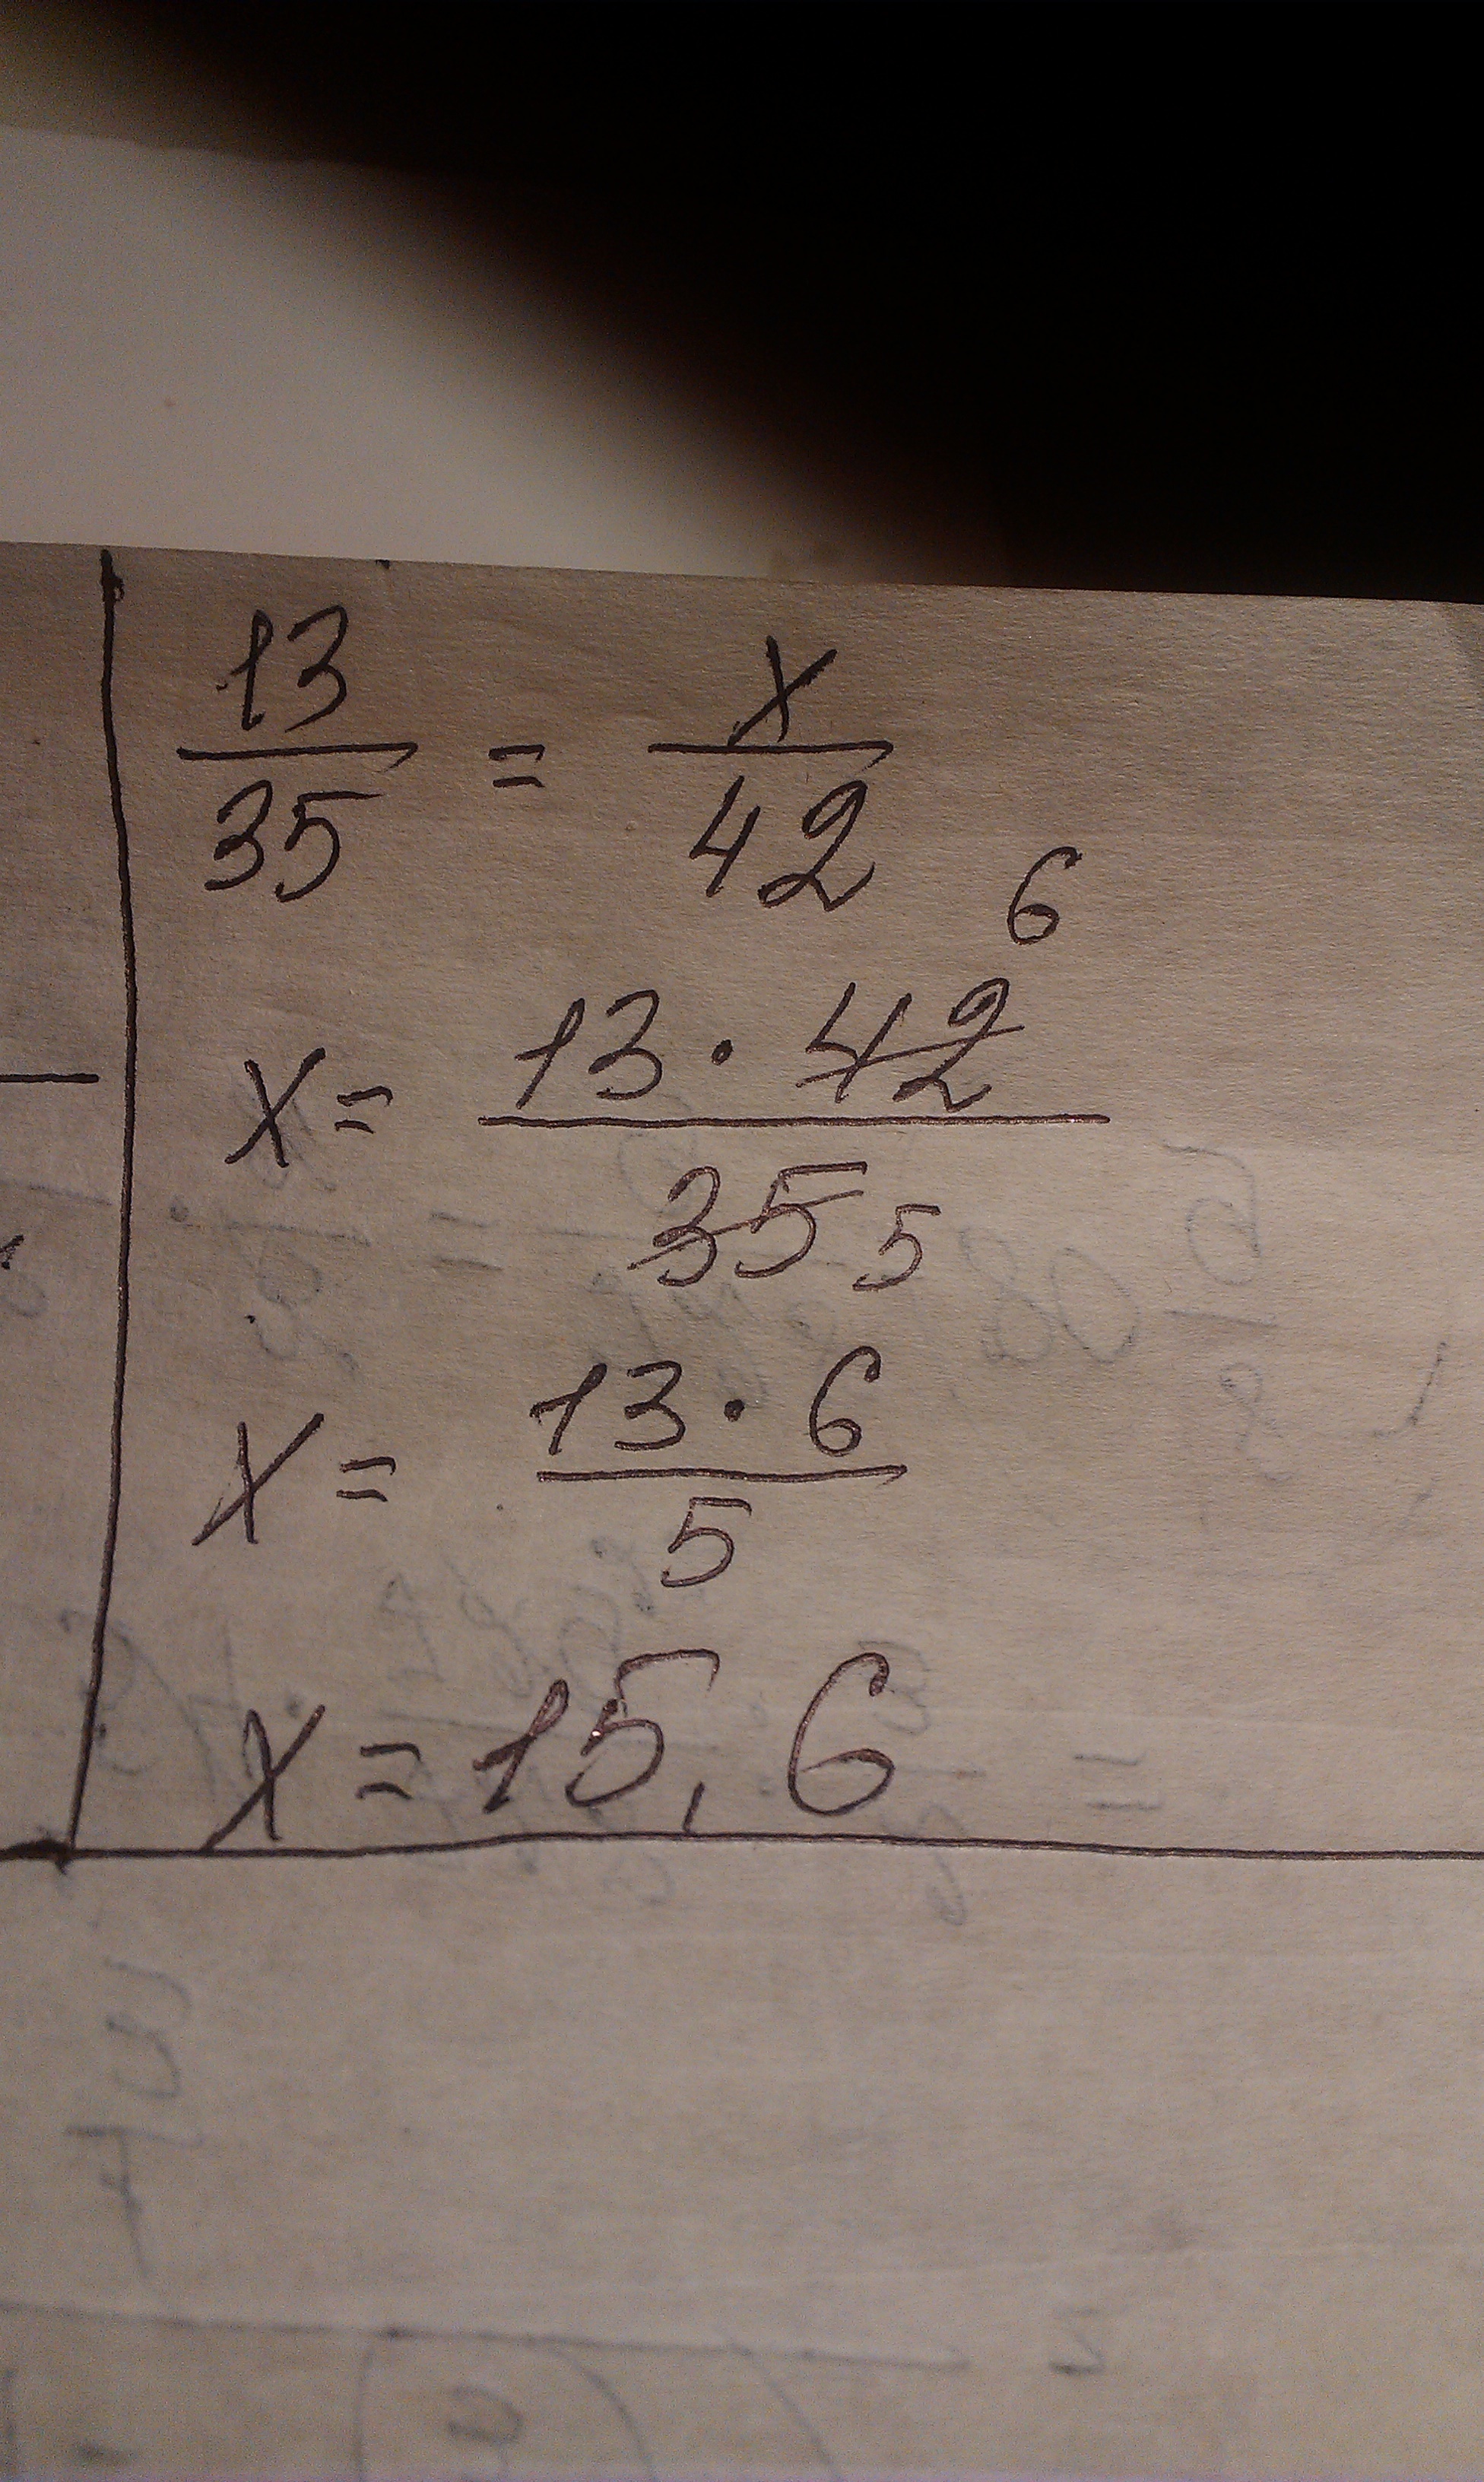 13/35 = x/42
x = 13 · 42 6 / 35 5
x = 13 · 6 / 5
x = 15,6